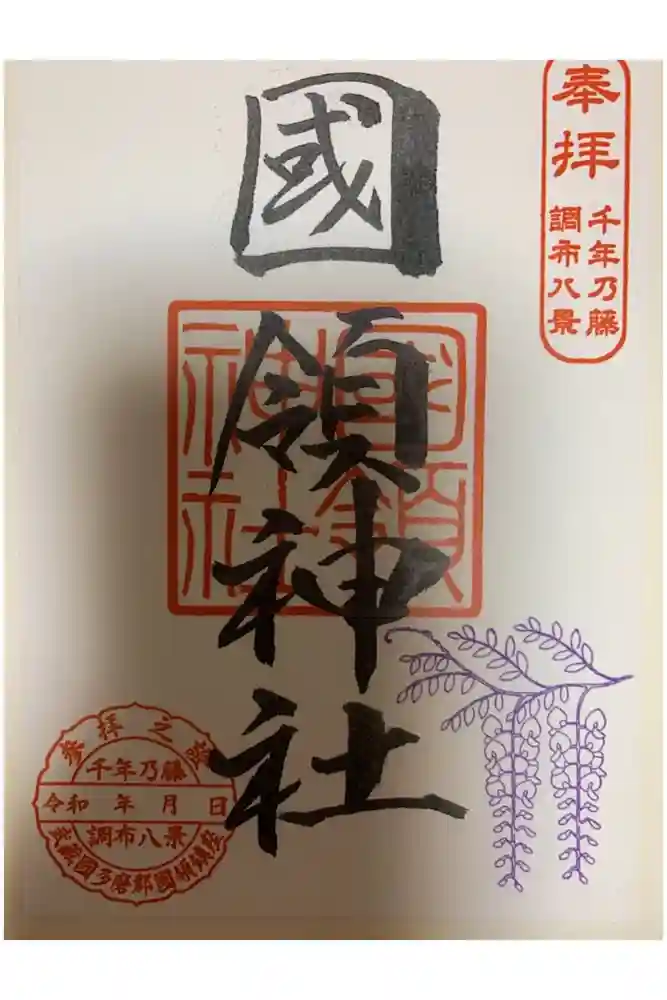 奉拝
千年乃藤
調布八景
國領神社
國領
神社
參拝之
千年乃藤
令和 年 月 日
調布八景
武蔵國多磨郡國領鎮祭